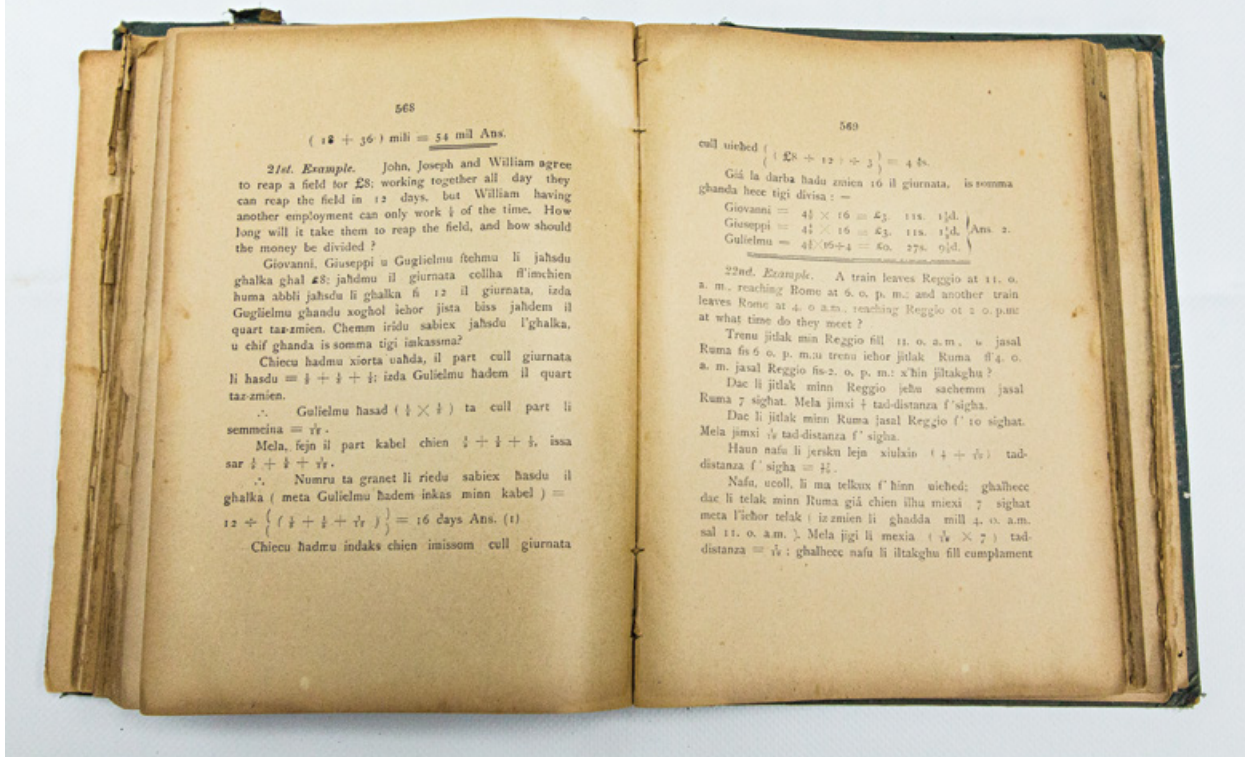 568
( 18 + 36 ) mili = 54 mil Ans.
21st. Example. John, Joseph and William agree
to reap a field for £8; working together all day they
can reap the field in 12 days, but William having
another employment can only work ¼ of the time. How
long will it take them to reap the field, and how should
the money be divided ?
Giovanni, Giuseppi u Guglielmu ftehmu li jaħsdu
għalka għal £8; jaħdmu il giurnata collha fl'imchien
huma abbli jaħsdu li għalka fi 12 il giurnata, izda
Guglielmu għandu xogħol ieħor jista biss jaħdem il
quart taz-zmien. Chemm iridu sabiex jaħsdu l'għalka,
u chif għanda is somma tigi imkassma?
Chiecu ħadmu xiorta uaħda, il part cull giurnata
li ħasdu = ⅓ + ⅓ + ⅓; izda Gulielmu ħadem il quart
taz-zmien.
∴ Gulielmu ħasad ( ⅓ × ¼ ) ta cull part li
semmeina = 1/12.
Mela, fejn il part kabel chien ⅓ + ⅓ + ⅓, issa
sar ⅓ + ⅓ + 1/12.
∴ Numru ta granet li riedu sabiex ħasdu il
għalka ( meta Gulielmu ħadem inkas minn kabel ) =
12 ÷ { ( ⅓ + ⅓ + 1/12 ) } = 16 days Ans. (1)
Chiecu ħadmu indaks chien imissom cull giurnata
569
cull uieħed { ( £8 ÷ 12 ) ÷ 3 } = 4 s.
Giá la darba ħadu zmien 16 il giurnata, is somma
għanda hecc tigi divisa : —
Giovanni = × 16 = £3. 11s. 1⅓d.
Giuseppi = × 16 = £3. 11s. 1⅓d. Ans. 2.
Gulielmu = ×16÷4 = £0. 27s. d.
22nd. Example. A train leaves Reggio at 11. o.
a. m., reaching Rome at 6. o. p. m.; and another train
leaves Rome at 4. o a.m., reaching Reggio at 2 o. p.m:
at what time do they meet ?
Trenu jitlak min Reggio fill 11. o. a. m., u jasal
Ruma fis 6 o. p. m.:u trenu ieħor jitlak Ruma fl'4. o.
a. m. jasal Reggio fis-2. o. p. m.: x'ħin jiltakgħu ?
Dac li jitlak minn Reggio jeħu sachemm jasal
Ruma 7 sigħat. Mela jimxi 1/7 tad-distanza f 'sigħa.
Dac li jitlak minn Ruma jasal Reggio f' 10 sigħat.
Mela jimxi 1/10 tad-distanza f' sigħa.
Haun nafu li jersku lejn xiulxin ( 1/7 + 1/10 ) tad-
distanza f ' sigħa = 17/70.
Nafu, ucoll, li ma telkux f' ħinn uieħed; għalhecc
dac li telak minn Ruma giá chien ilhu miexi 7 sigħat
meta l'ieħor telak ( iz zmien li għadda mill 4. o. a.m.
sal 11. o. a.m. ). Mela jigi li mexia ( 1/10 × 7 ) tad-
distanza = 7/10 ; għalhecc nafu li iltakgħu fill cumplament